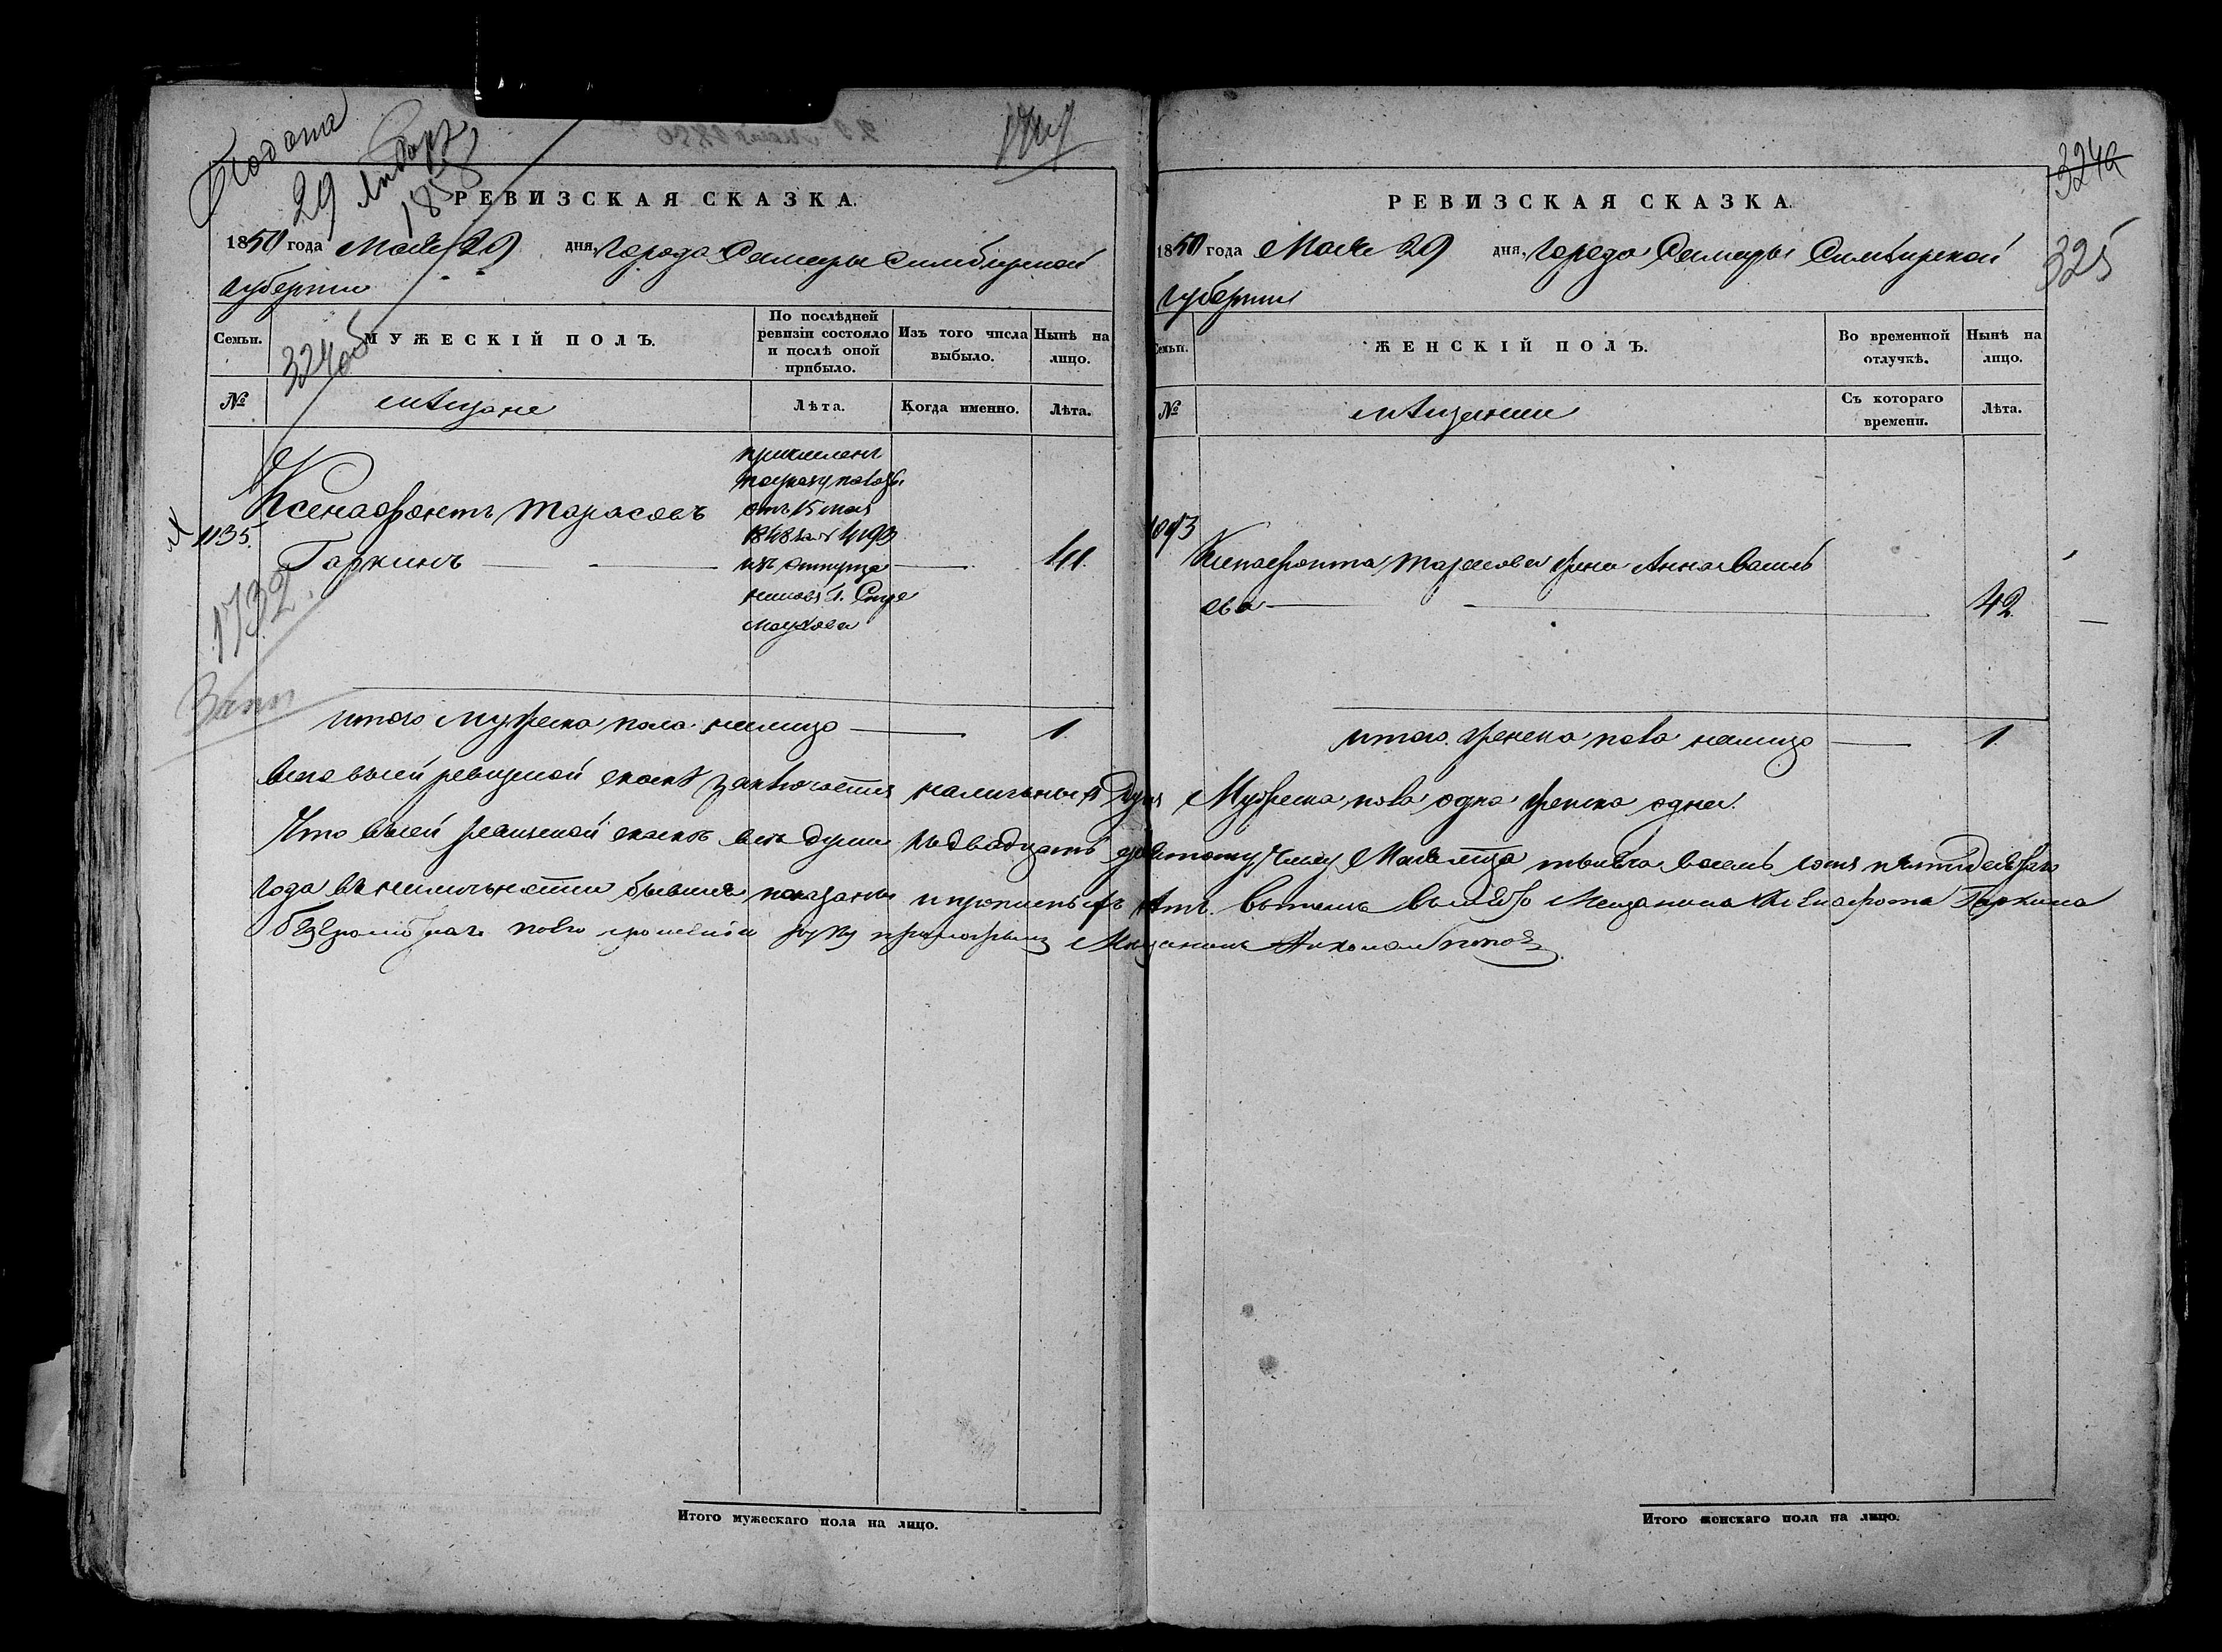 Подана
29 Января
1858
324об
РЕВИЗСКАЯ СКАЗКА.
1850 года Мая 29 дня, Города Самары Симбирской
губернии
Семьи.
МУЖЕСКІЙ ПОЛЪ.
По послѣдней ревизіи состояло и послѣ оной прибыло.
Изъ того числа выбыло.
Нынѣ на лицо.
№
мѣщане
Лѣта.
Когда именно.
Лѣта.
1135.
Ксенафонтъ Тарасовъ
Гаркинъ
причисленъ
по указу палаты
отъ 15 мая
1848 за №
изъ отпуще
41.
1732.
итого мужеска пола налицо 1.
РЕВИЗСКАЯ СКАЗКА.
324а
325
1850 года Мая 29 дня, города Самары Симбирской
губернии
Семьи.
ЖЕНСКІЙ ПОЛЪ.
Во временной отлучкѣ.
Нынѣ на лицо.
№
мѣщанки
Съ котораго времени.
Лѣта.
Ксенафонта Тарасова жена Анна Василь
ева 42.
итого женска пола налицо 1.
Всего въ сей ревизской сказкѣ заключается наличныхъ душъ Мужеска пола одна женска одна.
Что въ сей ревизской сказкѣ всѣ души къ двадцать девятому числу Мая м-ца тысяча восемь сотъ пятидесятаго
года въ наличности бывшіе показаны и прописныхъ нѣтъ. Въ томъ вместо Мещанина Ксенафонта Гаркина
по его прозьбе руку приложилъ Мещанинъ Николай Попов
Итого мужескаго пола на лицо.
Итого женскаго пола на лицо.